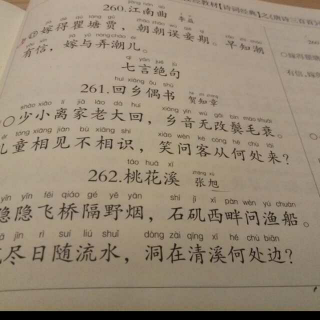 260.江南曲 李益
嫁得瞿塘贾，朝朝误妾期。早知潮
有信，嫁与弄潮儿。
七言绝句
huí xiāng ǒu shū
261.回乡偶书 贺知章
shào xiǎo lí jiā lǎo dà huí xiāng yīn wú gǎi bìn máo shuāi
○少小离家老大回，乡音无改鬓毛衰。
tóng xiāng jiàn bù xiāng shí xiào wèn kè cóng hé chù lái
儿童相见不相识，笑问客从何处来？
táo huā xī
262.桃花溪 张旭
yǐn yǐn fēi qiáo gé yě yān shí jī xī pàn wèn yú chuán
隐隐飞桥隔野烟，石矶西畔问渔船。
jìn rì suí liú shuǐ dòng zài qīng xī hé chù biān
尽日随流水，洞在清溪何处边？